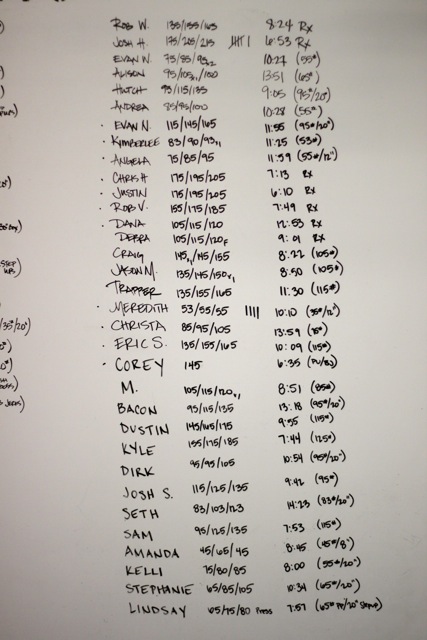 ROB W. 135/155/165 8:24 Rx
JOSH H. 175/205/215 6:53 Rx
EVAN W. 75/85/93 10:27 (55#)
ALISON 95/105/100 13:51 (65#)
HUTCH 95/115/135 9:05 (95#/20")
ANDREA 85/95/100 10:28 (55#)
· EVAN N. 115/145/165 11:55 (95#/20")
· KIMBERLEE 83/90/93 11:25 (53#)
· ANGELA 75/85/95 11:59 (55#/12")
· CHRIS H 175/195/205 7:13 Rx
· JUSTIN 175/195/205 6:10 Rx
· ROB V. 155/175/185 7:49 Rx
· DANA 105/115/120 12:53 Rx
DEBRA 105/115/120F 9:01 Rx
CRAIG 145/145/155 8:22 (105#)
JASON M. 135/145/150 8:50 (105#)
TRAPPER 135/155/165 11:30 (115#)
· MEREDITH 53/55/55 |||| 10:10 (35#/12")
· CHRISTA 85/95/105 13:59
· ERIC S. 135/155/165 10:09 (115#)
· COREY 145 6:35 (PU/BJ)
M. 105/115/120 8:51 (85#)
BACON 95/115/135 13:18 (95#/20")
DUSTIN 145/165/175 9:55 (115#)
KYLE 155/175/185 7:44 (125#)
DIRK 95/95/105 10:54 (95#/20")
JOSH S. 115/125/135 9:42 (95#)
SETH 83/103/123 14:23 (83#/20")
SAM 95/125/135 7:53 (115#)
AMANDA 45/65/45 8:45 (45#/8")
KELLI 75/80/85 8:00 (55#/20")
STEPHANIE 65/85/105 10:34 (65#/20")
LINDSAY 65/75/80 Press 7:57 (65# PP/20" Stepup)